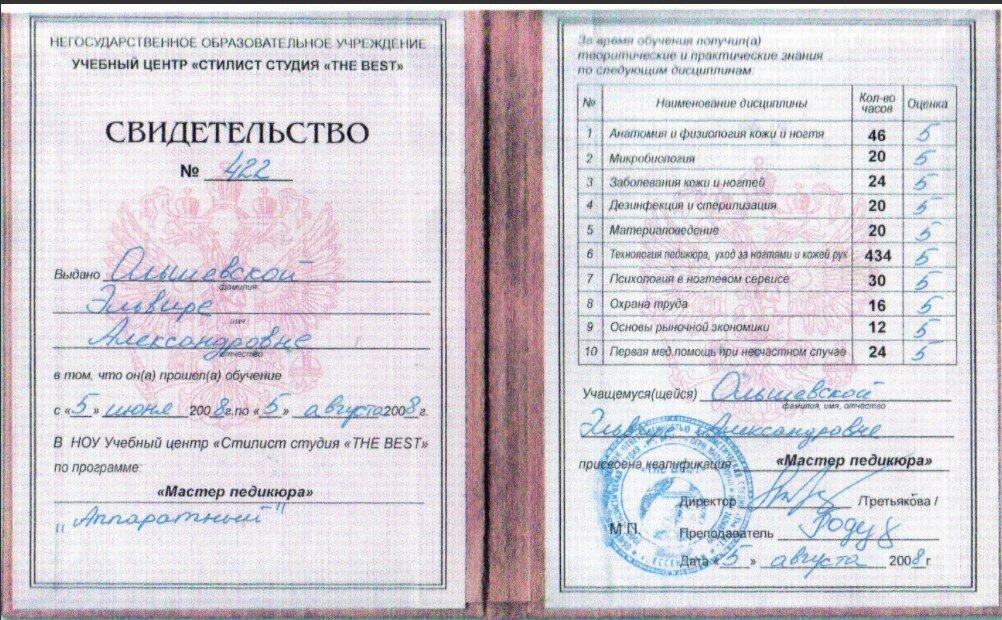 НЕГОСУДАРСТВЕННОЕ ОБРАЗОВАТЕЛЬНОЕ УЧРЕЖДЕНИЕ
УЧЕБНЫЙ ЦЕНТР «СТИЛИСТ СТУДИЯ «THE BEST»
СВИДЕТЕЛЬСТВО
№ 422
Выдано Ольшевской
фамилия
Эльвире
имя
Александровне
отчество
в том, что он(а) прошел(а) обучение
с «5» июня 2008 г. по «5» августа 2008 г.
В НОУ Учебный центр «Стилист студия «THE BEST»
по программе:
«Мастер педикюра»
"Аппаратный"
За время обучения получил(а)
теоритические и практические знания
по следующим дисциплинам:
№ Наименование дисциплины Кол-во часов Оценка
1 Анатомия и физиология кожи и ногтя 46 5
2 Микробиология 20 5
3 Заболевания кожи и ногтей 24 5
4 Дезинфекция и стерилизация 20 5
5 Материаловедение 20 5
6 Технология педикюра, уход за ногтями и кожей рук 434 5
7 Психология в ногтевом сервисе 30 5
8 Охрана труда 16 5
9 Основы рыночной экономики 12 5
10 Первая мед.помощь при несчастном случае 24 5
Учащемуся(щейся) Ольшевской
фамилия, имя, отчество
Эльвире Александровне
присвоена квалификация «Мастер педикюра»
Директор /Третьякова /
М.П.
Преподаватель
Дата «5» августа 2008 г.